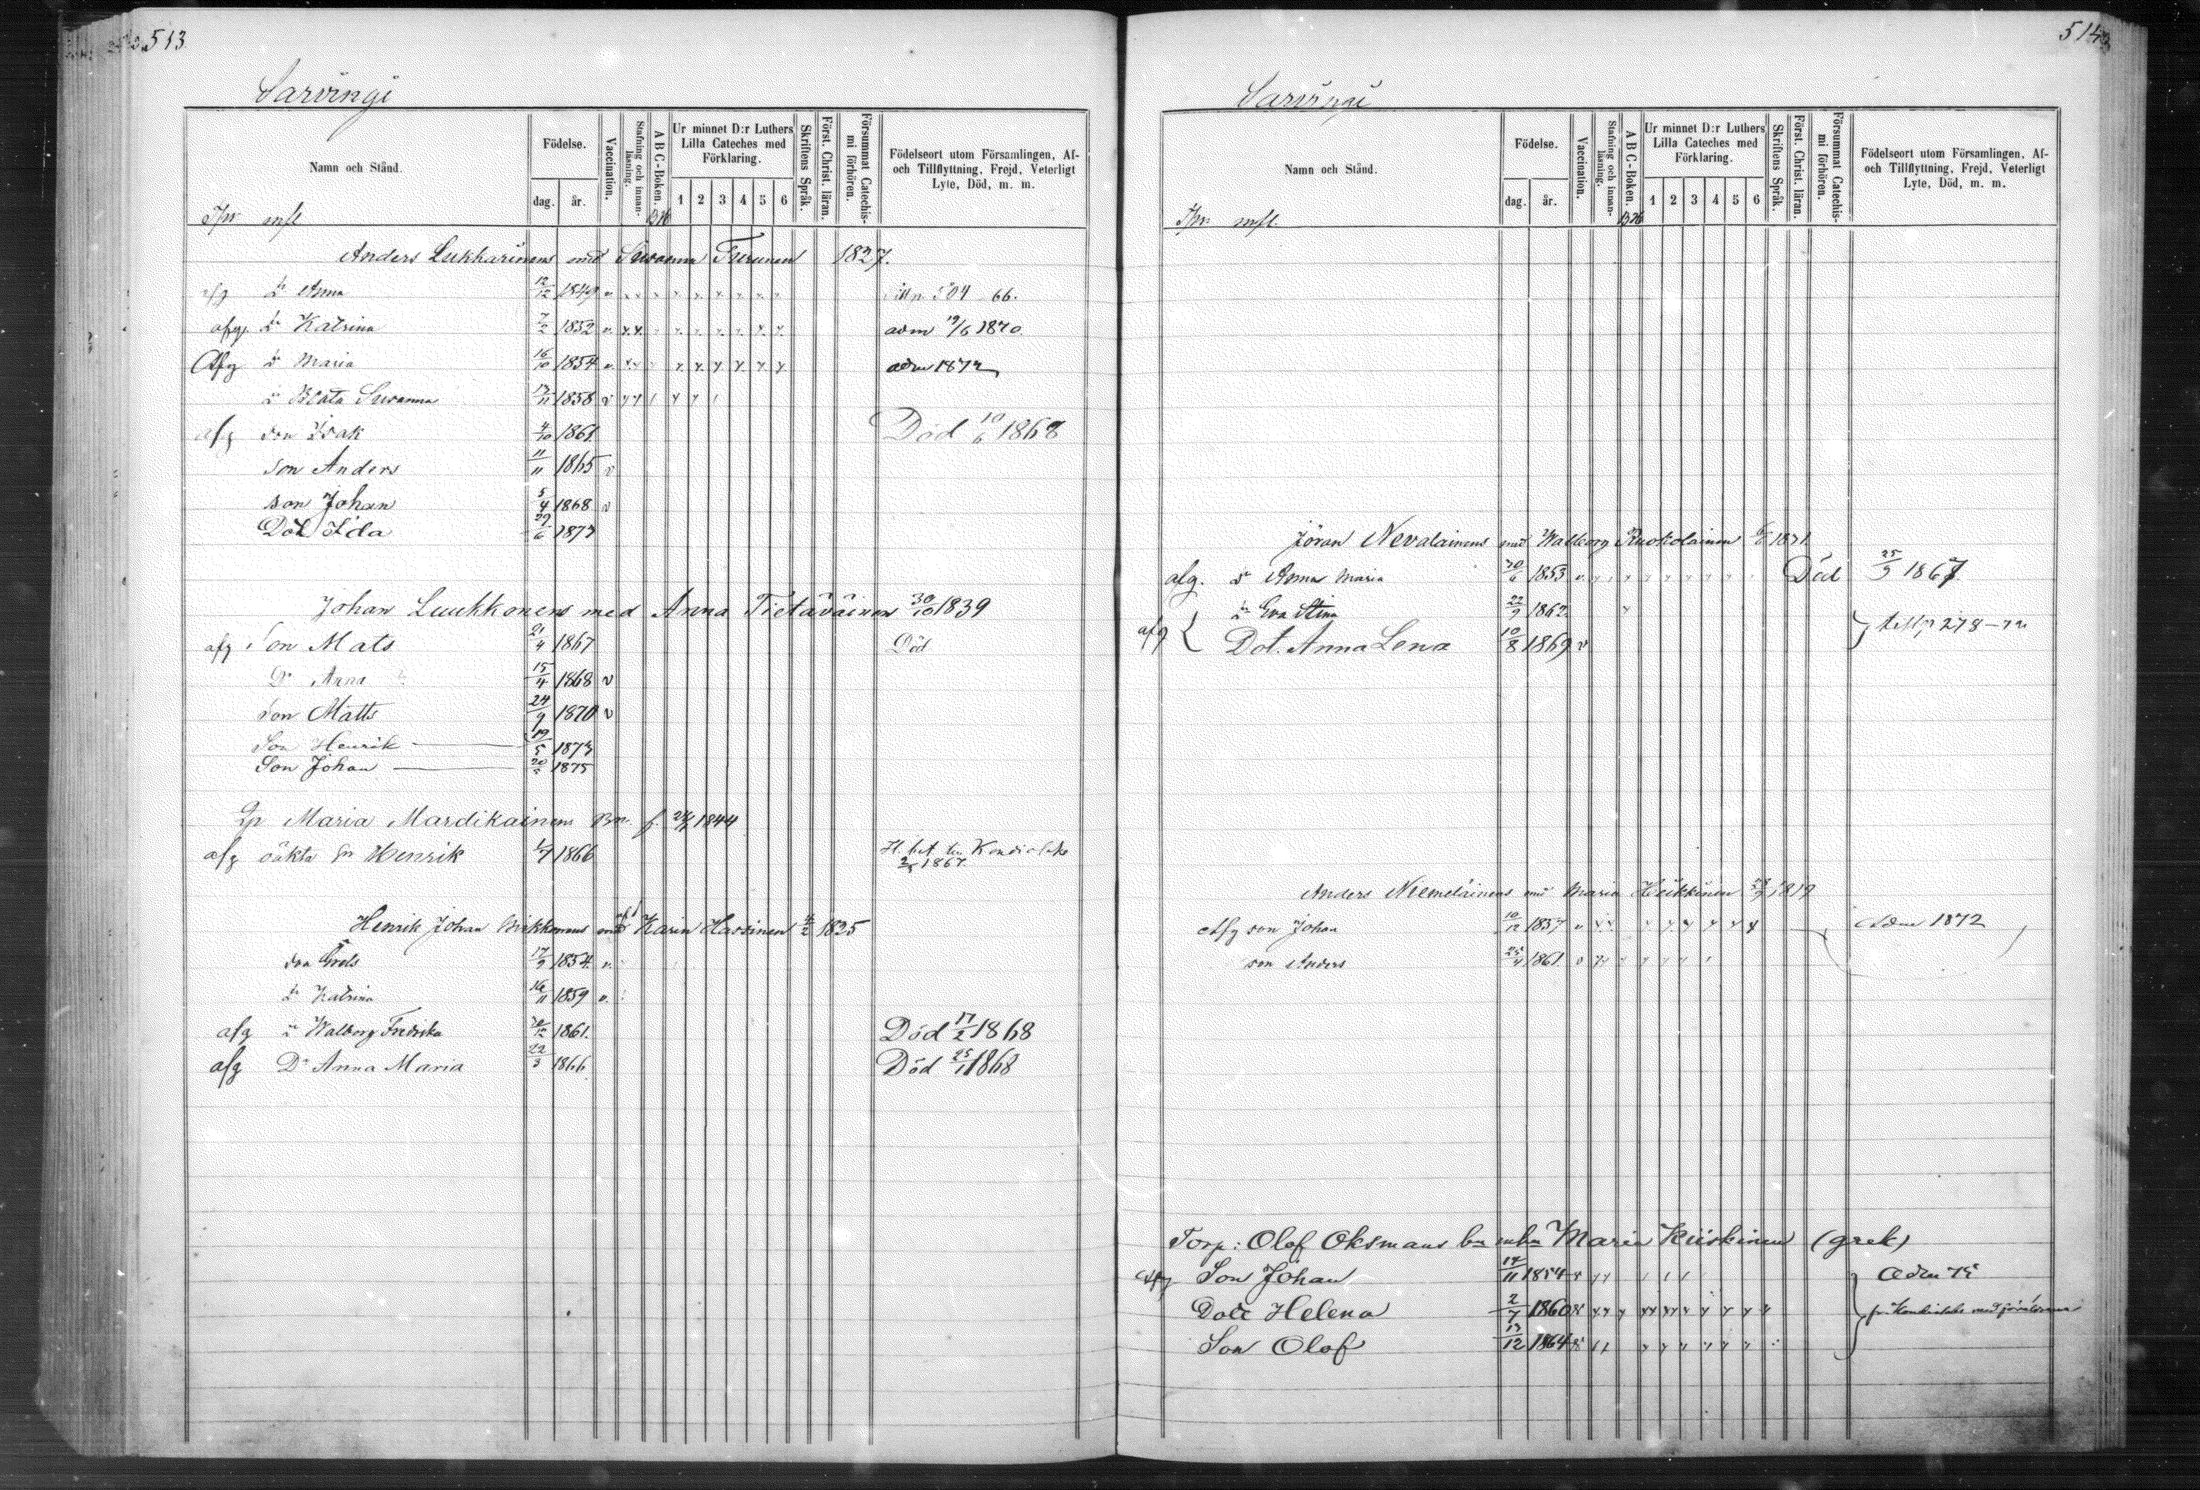 513
Sarvingi
Namn och Stånd.
Födelse.
dag. år.
Vaccination.
Stafning och innanläsning.
A B C-Boken.
Ur minnet D:r Luthers Lilla Cateches med Förklaring.
1 2 3 4 5 6
Skriftens Språk.
Först. Christ. läran.
Försummat Catechismi förhören.
Födelseort utom Församlingen, Af- och Tillflyttning, Frejd, Veterligt Lyte, Död, m. m.
Anders Lukkarinens med Susanna Turunen 1827.
dr Anna 12/12 1849 504 66.
afg. dr Katrina 7/2 1852 adm 19/6 1870
Afg dr Maria 16/10 1854 adm 1872
dr Beata Susanna 1858
afg son Isak 4/10 1861 Död 10/6 1868
son Anders 11/11 1865 v
son Johan 5/4 1868 v
Dot Ida 29/6 1873
Johan Luukkonens med Anna Tietäväinen 30/10 1839
afg Son Mats 21/4 1867 Död
Dr Anna 15/4 1868 v
Son Matts 24/9 1870 v
Son Henrik 19/5 1873
Son Johan 1875
Maria Mardikainens Bn. f. 1844
afg oäkta sn Henrik 1866 Kondiolaks 1867.
Henrik Johan med Karin Hassinen 4/2 1825
son Grels 17/9 1854
dr Katrina 1859
afg dr Walborg Fredrika 1861. Död 17/2 1868
afg Dr Anna Maria 22/3 1866 Död 25/1 1868
514
Sarvingi
Namn och Stånd.
Födelse.
dag. år.
Vaccination.
Stafning och innanläsning.
A B C-Boken.
Ur minnet D:r Luthers Lilla Cateches med Förklaring.
1 2 3 4 5 6
Skriftens Språk.
Först. Christ. läran.
Försummat Catechismi förhören.
Födelseort utom Församlingen, Af- och Tillflyttning, Frejd, Veterligt Lyte, Död, m. m.
Jöran Nevalainens med Walborg Ruokolainen
afg. dr Anna Maria 1853 Död 25/9 1867
dr Eva Stina 22/9 1862
afg Dot. Anna Lena 10/8 1869 v 278
Anders Niemeläinens med Maria Heikkinen 1819
Afg son Johan 10/12 1857 Adm 1872
son Anders 1861
Torp: Olof Oksmans Maria Kiiskinen (grek)
afg Son Johan 1854 Adm 75
Dott Helena 2/7 1860
Son Olof 13/12 1864